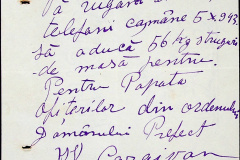 Vă rugăm a
telefoni camăne 5 x 943
să aducă 56 kg struguri
de masă pentru.
Pentru Popota
ofițerilor din ordonul
Domnului Prefect